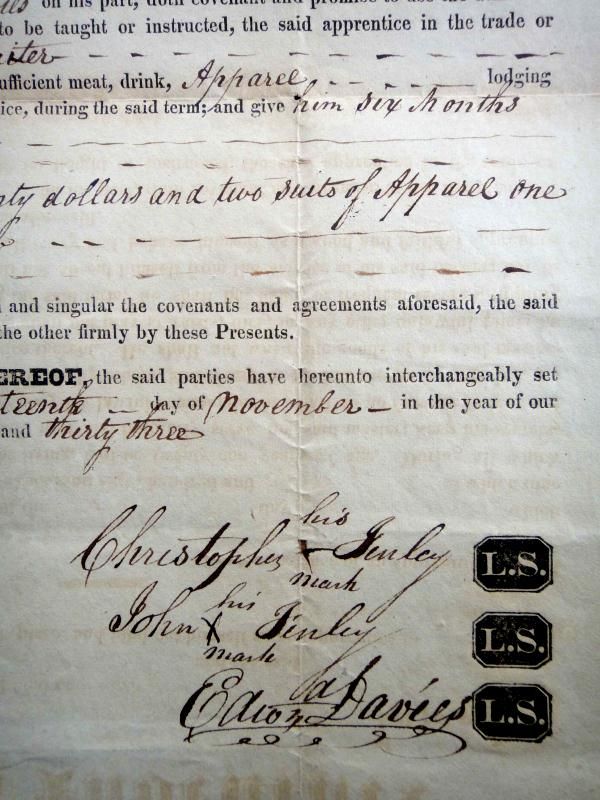 on his part, doth covenant and promise to use the
to be taught or instructed, the said apprentice in the trade or
ufficient meat, drink, Apparel lodging
ice, during the said term; and give him six Months
ty dollars and two suits of Apparel one
and singular the covenants and agreements aforesaid, the said
the other firmly by these Presents.
EREOF, the said parties have hereunto interchangeably set
teenth day of November in the year of our
and thirty three
his
Christopher + Finley L.S.
mark
his
John X Finley L.S.
mark
Edwd Davies L.S.